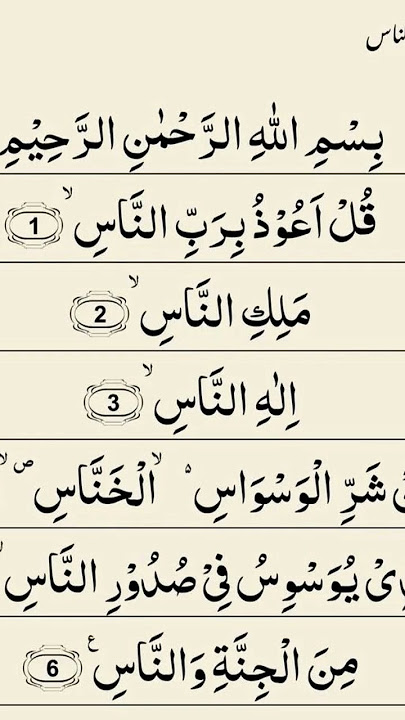 الناس
بِسْمِ اللهِ الرَّحْمٰنِ الرَّحِيْمِ
قُلْ اَعُوْذُ بِرَبِّ النَّاسِ ۙ 1
مَلِكِ النَّاسِ ۙ 2
اِلٰهِ النَّاسِ ۙ 3
شَرِّ الْوَسْوَاسِ ۙ الْخَنَّاسِ ۙ ص
يُوَسْوِسُ فِيْ صُدُوْرِ النَّاسِ ۙ
مِنَ الْجِنَّةِ وَالنَّاسِ ع 6